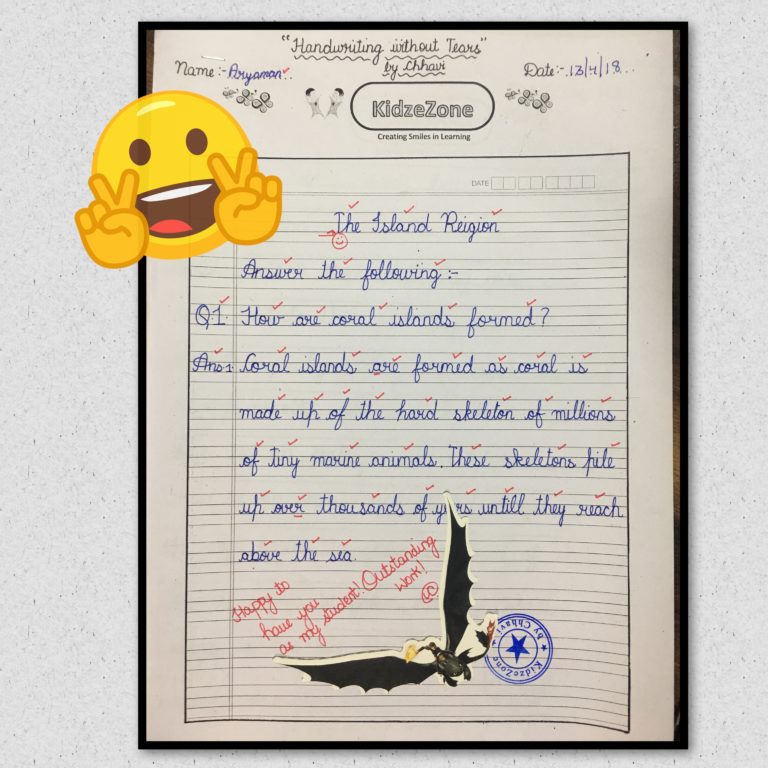 "Handwriting without Tears"
by Chhavi
Name:- Aryaman..
Date:- 13/4/18...
KidzeZone
Creating Smiles in Learning
DATE
The Island Reigion
Answer the following:-
Q.1. How are coral islands formed?
Ans1. Coral islands are formed as coral is
made up of the hard skeleton of millions
of tiny marine animals. These skeletons pile
up over thousands of untill they reach
above the sea.
Happy to
have you
as my student! Outstanding
Work!
KidzeZone
by Chhavi